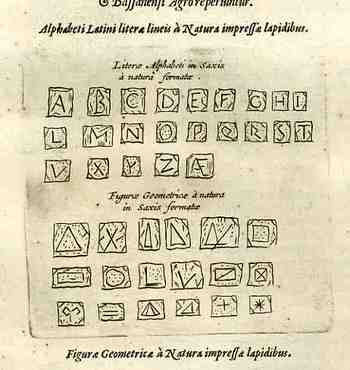 & Bassanensi Agro reperiuntur.
Alphabeti Latini literæ lineis à Natura impressæ lapidibus.
Literæ Alphabeti in Saxis
à natura formatæ.
A B C D E F G H I
L M N O P Q R S T
V X Y Z Æ
Figuræ Geometricæ à natura
in Saxis formatæ
Figuræ Geometricæ à Natura impressæ lapidibus.